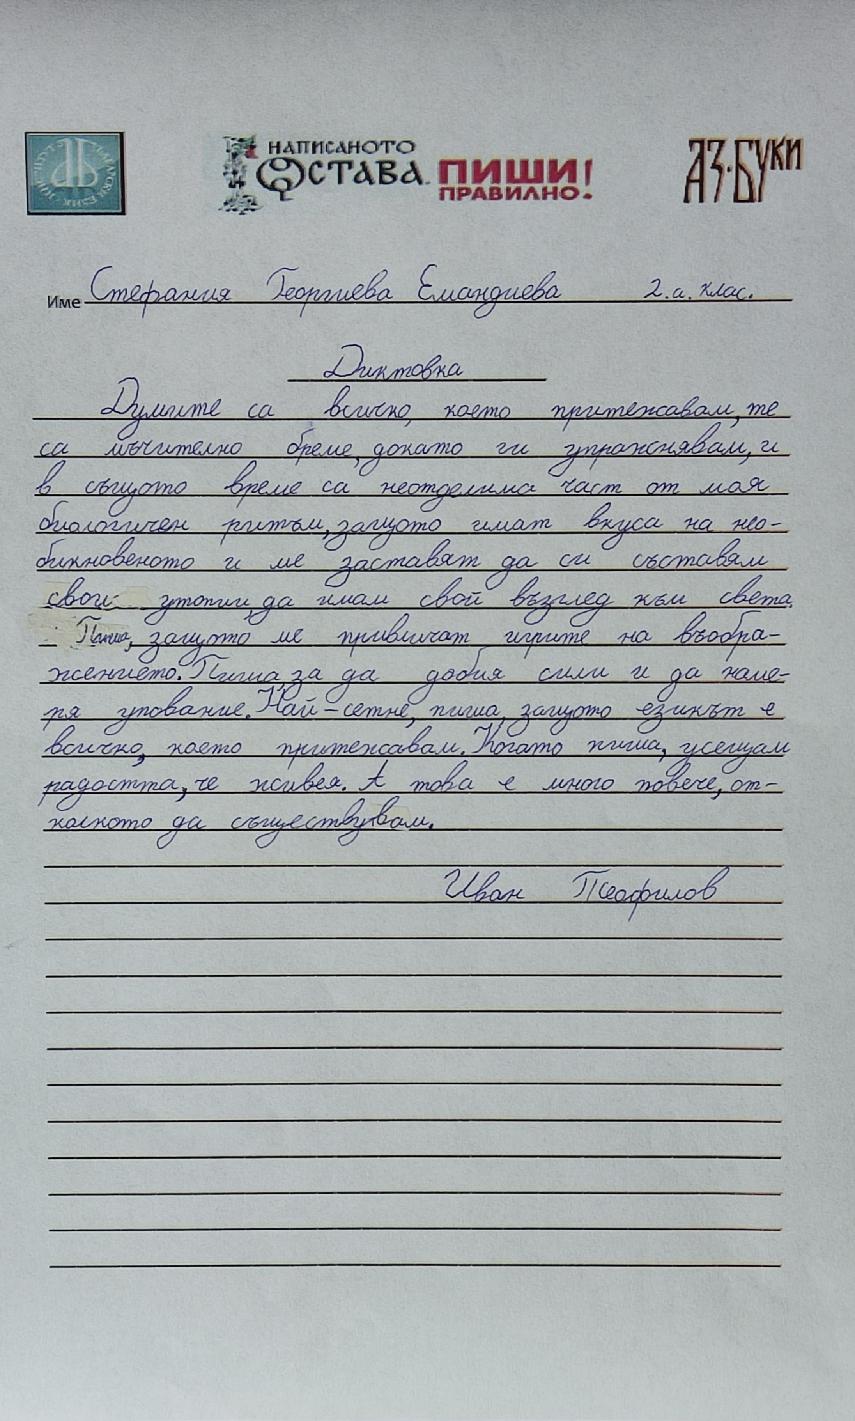 НАПИСАНОТО
ОСТАВА. ПИШИ!
ПРАВИЛНО!
АЗ·БУКИ
Име Стефания Георгиева Емандиева 2.а. клас.
Диктовка
Думите са всичко, което притежавам, те
са мъчително бреме, докато ги упражнявам, и
в същото време са неотделима част от моя
биологичен ритъм, защото имат вкуса на нео-
бикновеното и ме заставят да си съставям
свои утопии, да имам свой възглед към света.
Пиша, защото ме привличат игрите на въобра-
жението. Пиша, за да добия сили и да наме-
ря упование. Най-сетне, пиша, защото езикът е
всичко, което притежавам. Когато пиша, усещам
радостта, че живея. А това е много повече, от-
колкото да съществувам.
Иван Теофилов